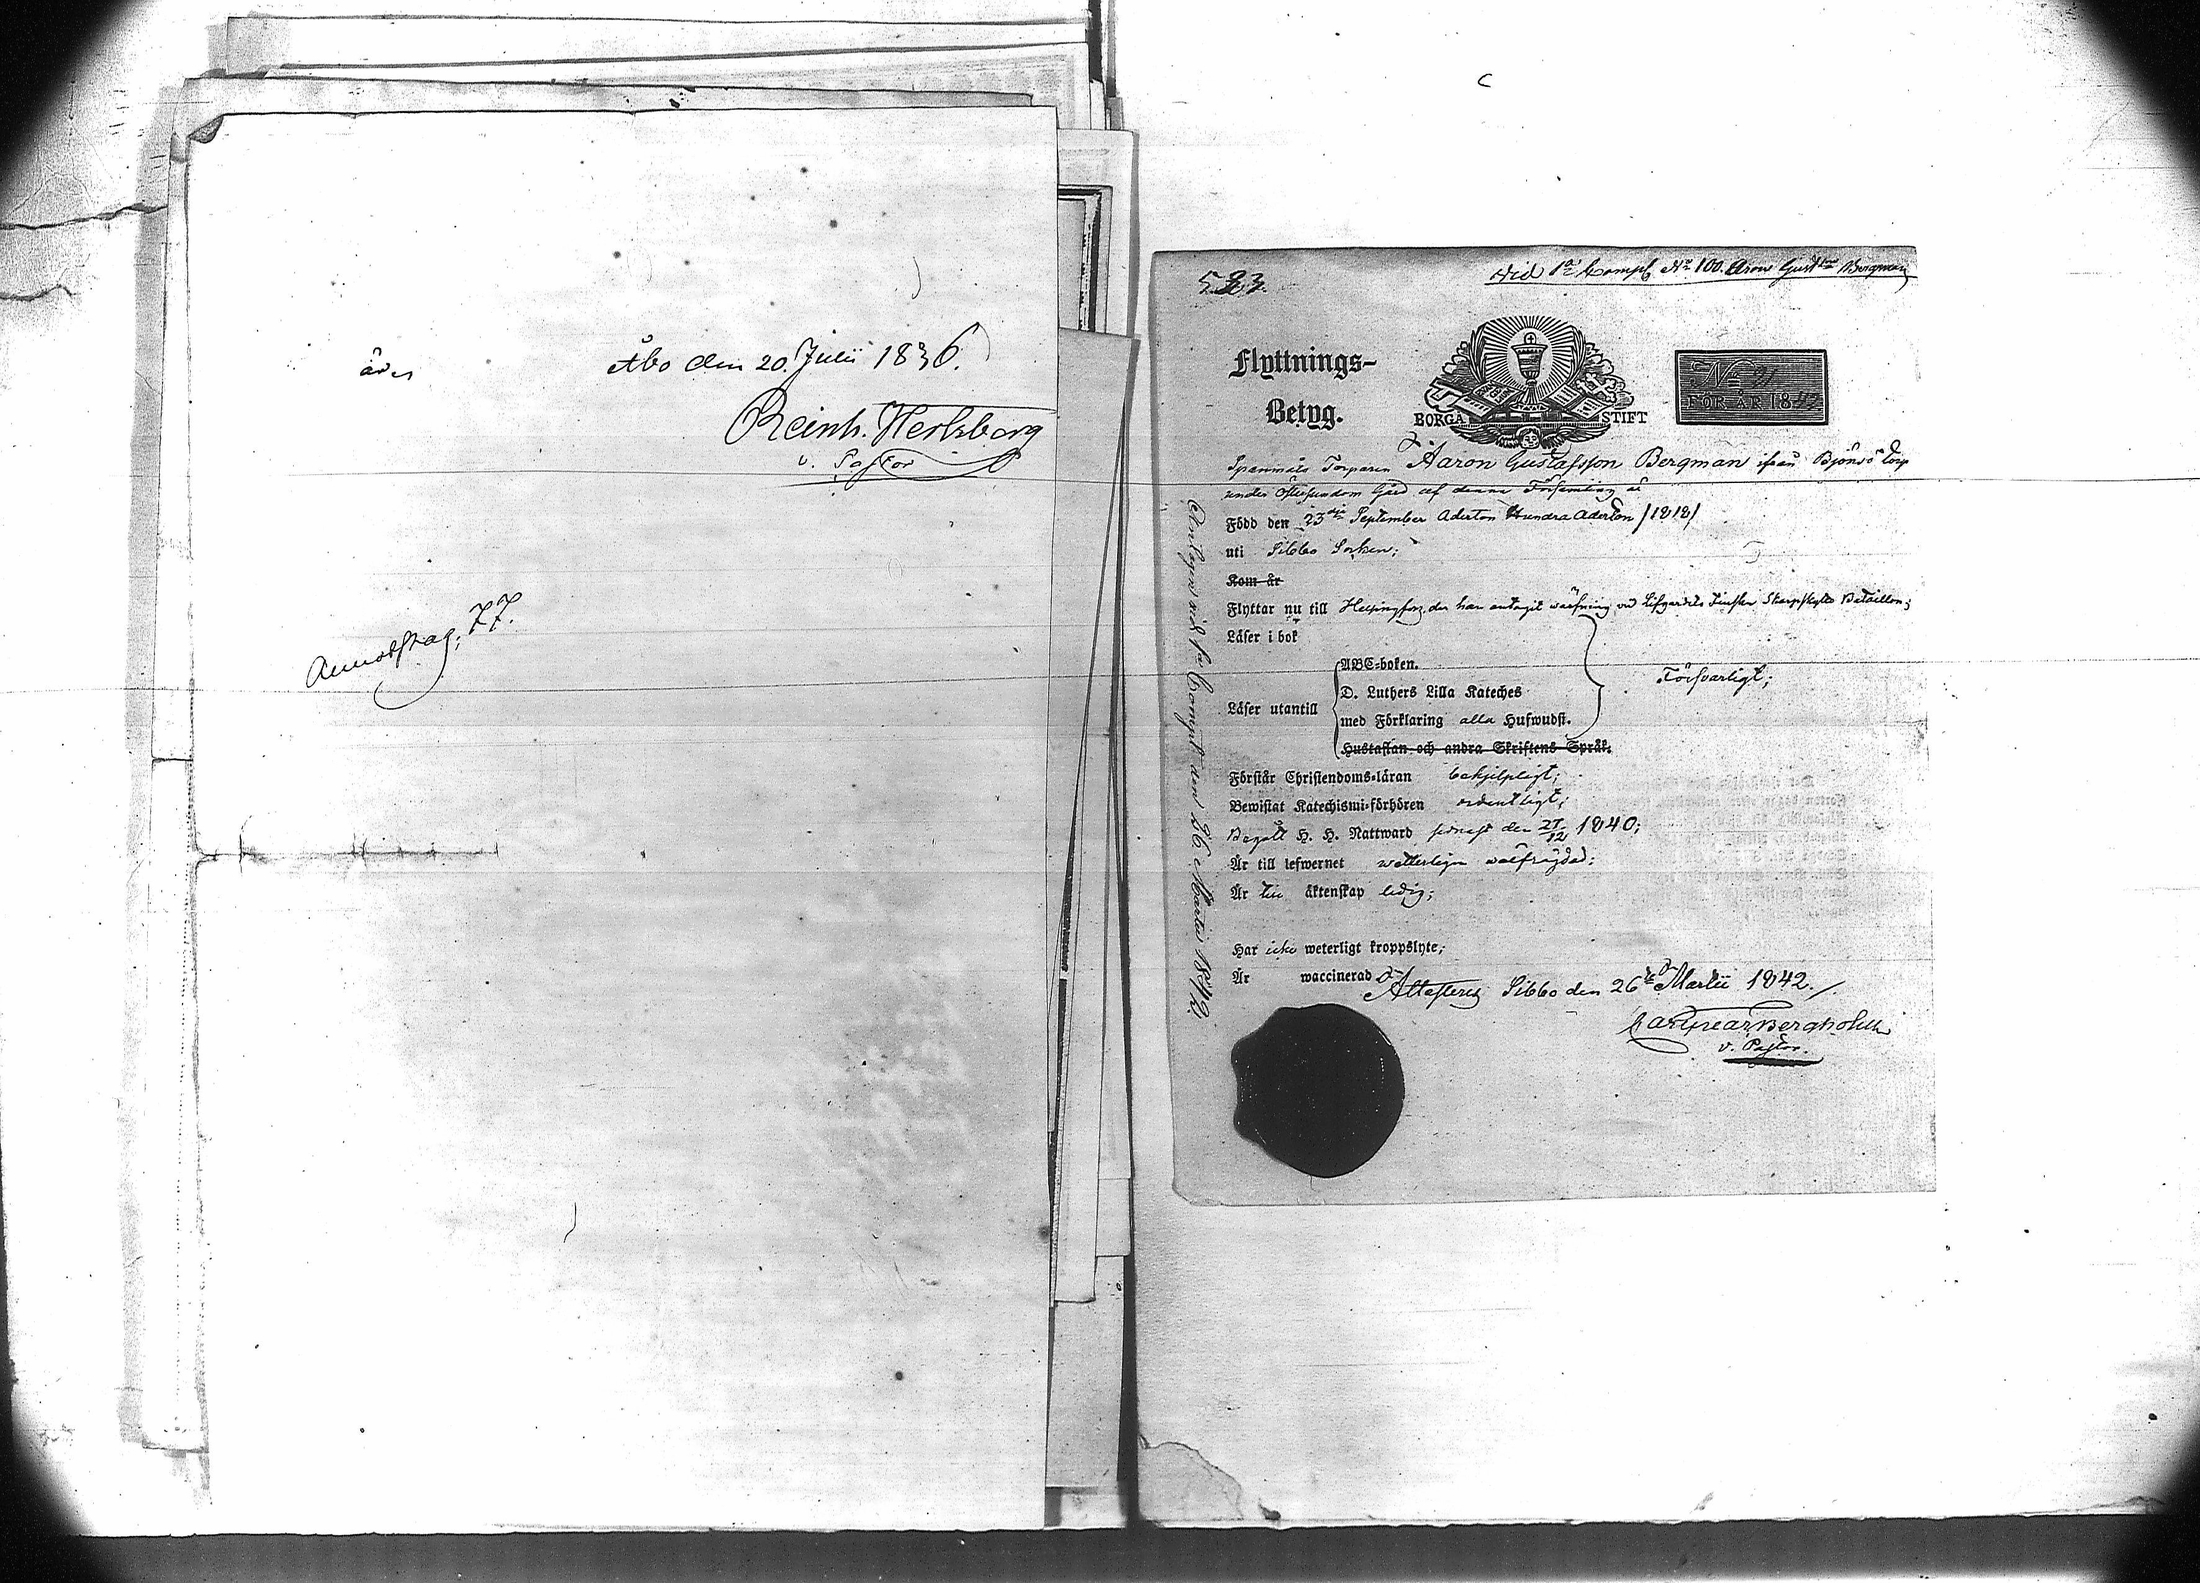 Åbo den 20. Julii 1836.
Reinh. Hertzberg
v. Pastor
Annotskag. 77.
583.
vid 1a Comp. No 100. Aron Gustson Bergman
Flyttnings-
Betyg.
BORGÅ STIFT
No 21
FÖR ÅR 1842
Torparen Aaron Gustafsson Bergman ifrån Björnsö torp
under Östersundom Gård af denna Församling är
Född den 23dje September Aderton Hundra Aderton /1818/
uti Sibbo Socken;
Kom år
Flyttar nu till Helsingfors, der han antagit värfning vid Lifgardets Finska Skarpskytte Bataillon;
Läser i bok
Läser utantill
ABC-boken.
D. Luthers Lilla Kateches
med Förklaring alla Hufwudst.
Hustaflan och andra Skriftens Språk.
Försvarligt;
Förstår Christendoms-läran behjelpligt;
Bewistat Katechismi-förhören ordentligt;
Begått H. H. Nattward senast den 27/12 1840;
Är till lefwernet wetterligen wälfrägdad;
Är till äktenskap ledig;
Har icke weterligt kroppslyte;
Är waccinerad
Attesteras Sibbo den 26te Martii 1842./.
Bergholm
v. Pastor.
Antagen vid 1a Compt den 26 Martii 1842